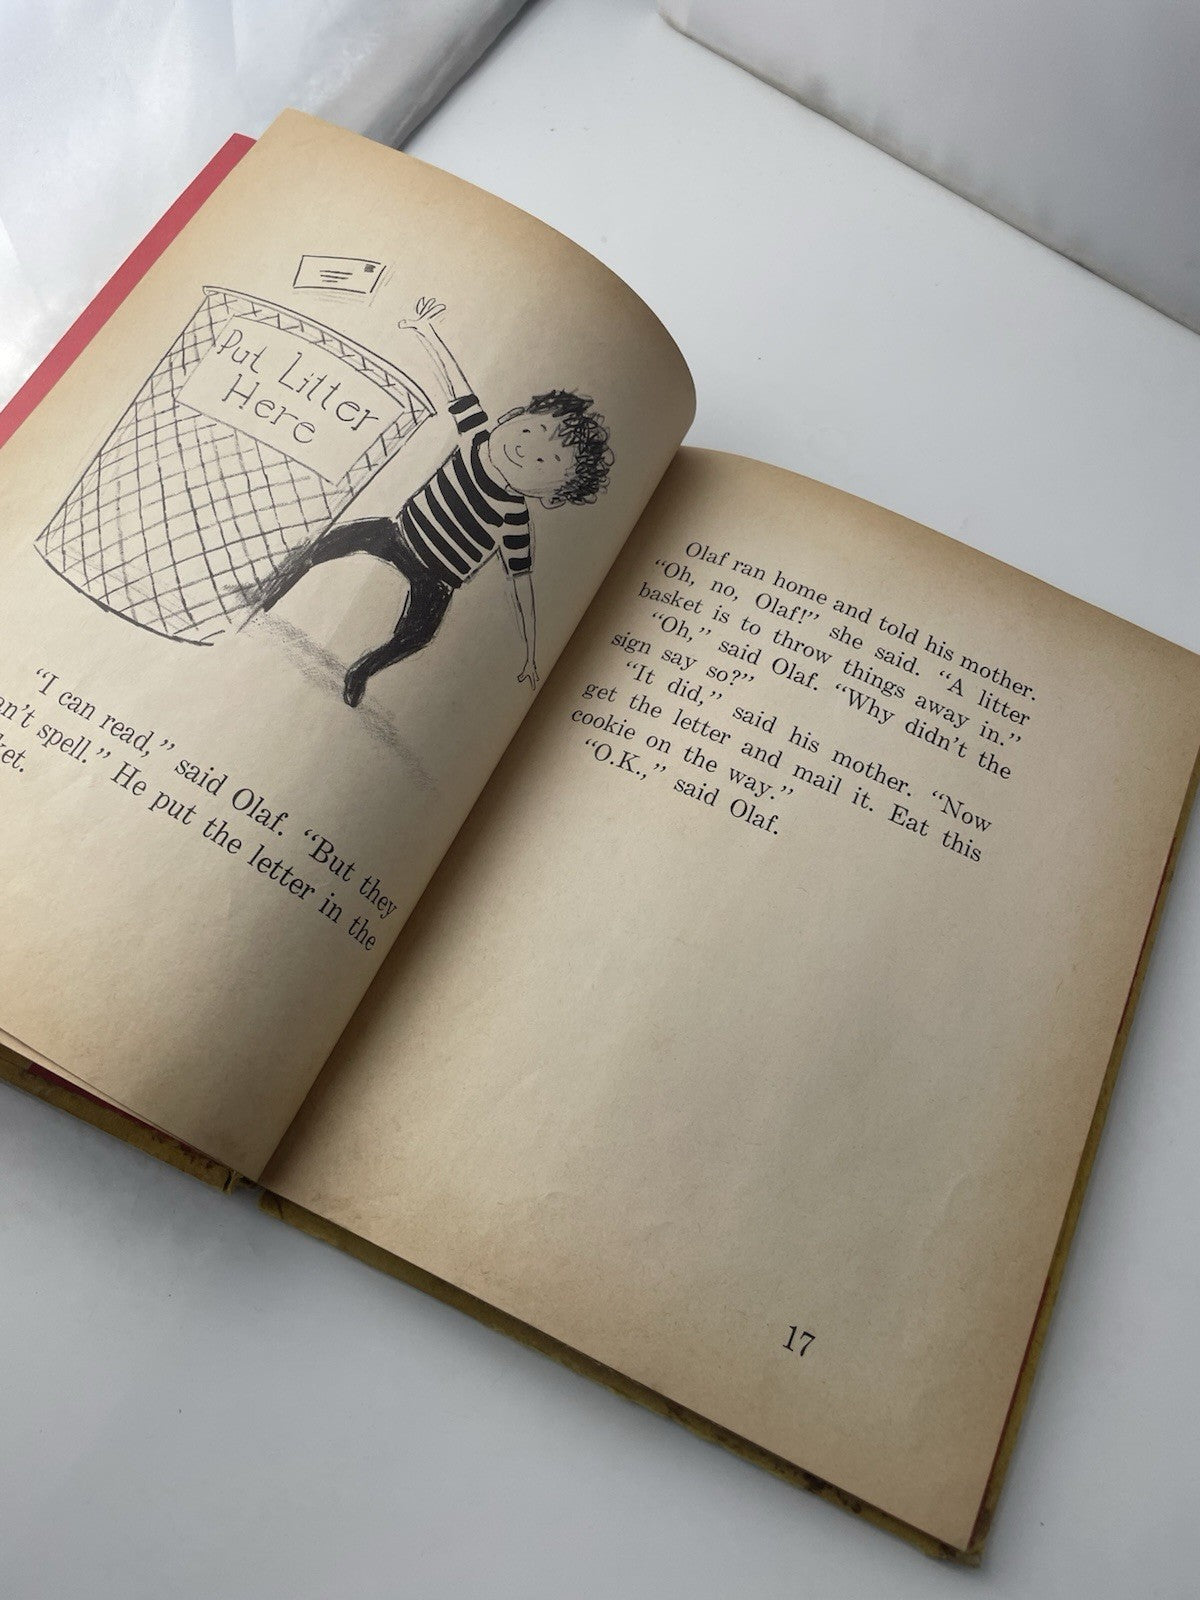 Put Litter
Here
"I can read," said Olaf. "But they
can't spell." He put the letter in the
Olaf ran home and told his mother.
"Oh, no, Olaf!" she said. "A litter
basket is to throw things away in."
"Oh," said Olaf. "Why didn't the
sign say so?"
"It did," said his mother. "Now
get the letter and mail it. Eat this
cookie on the way."
"O.K.," said Olaf.
17